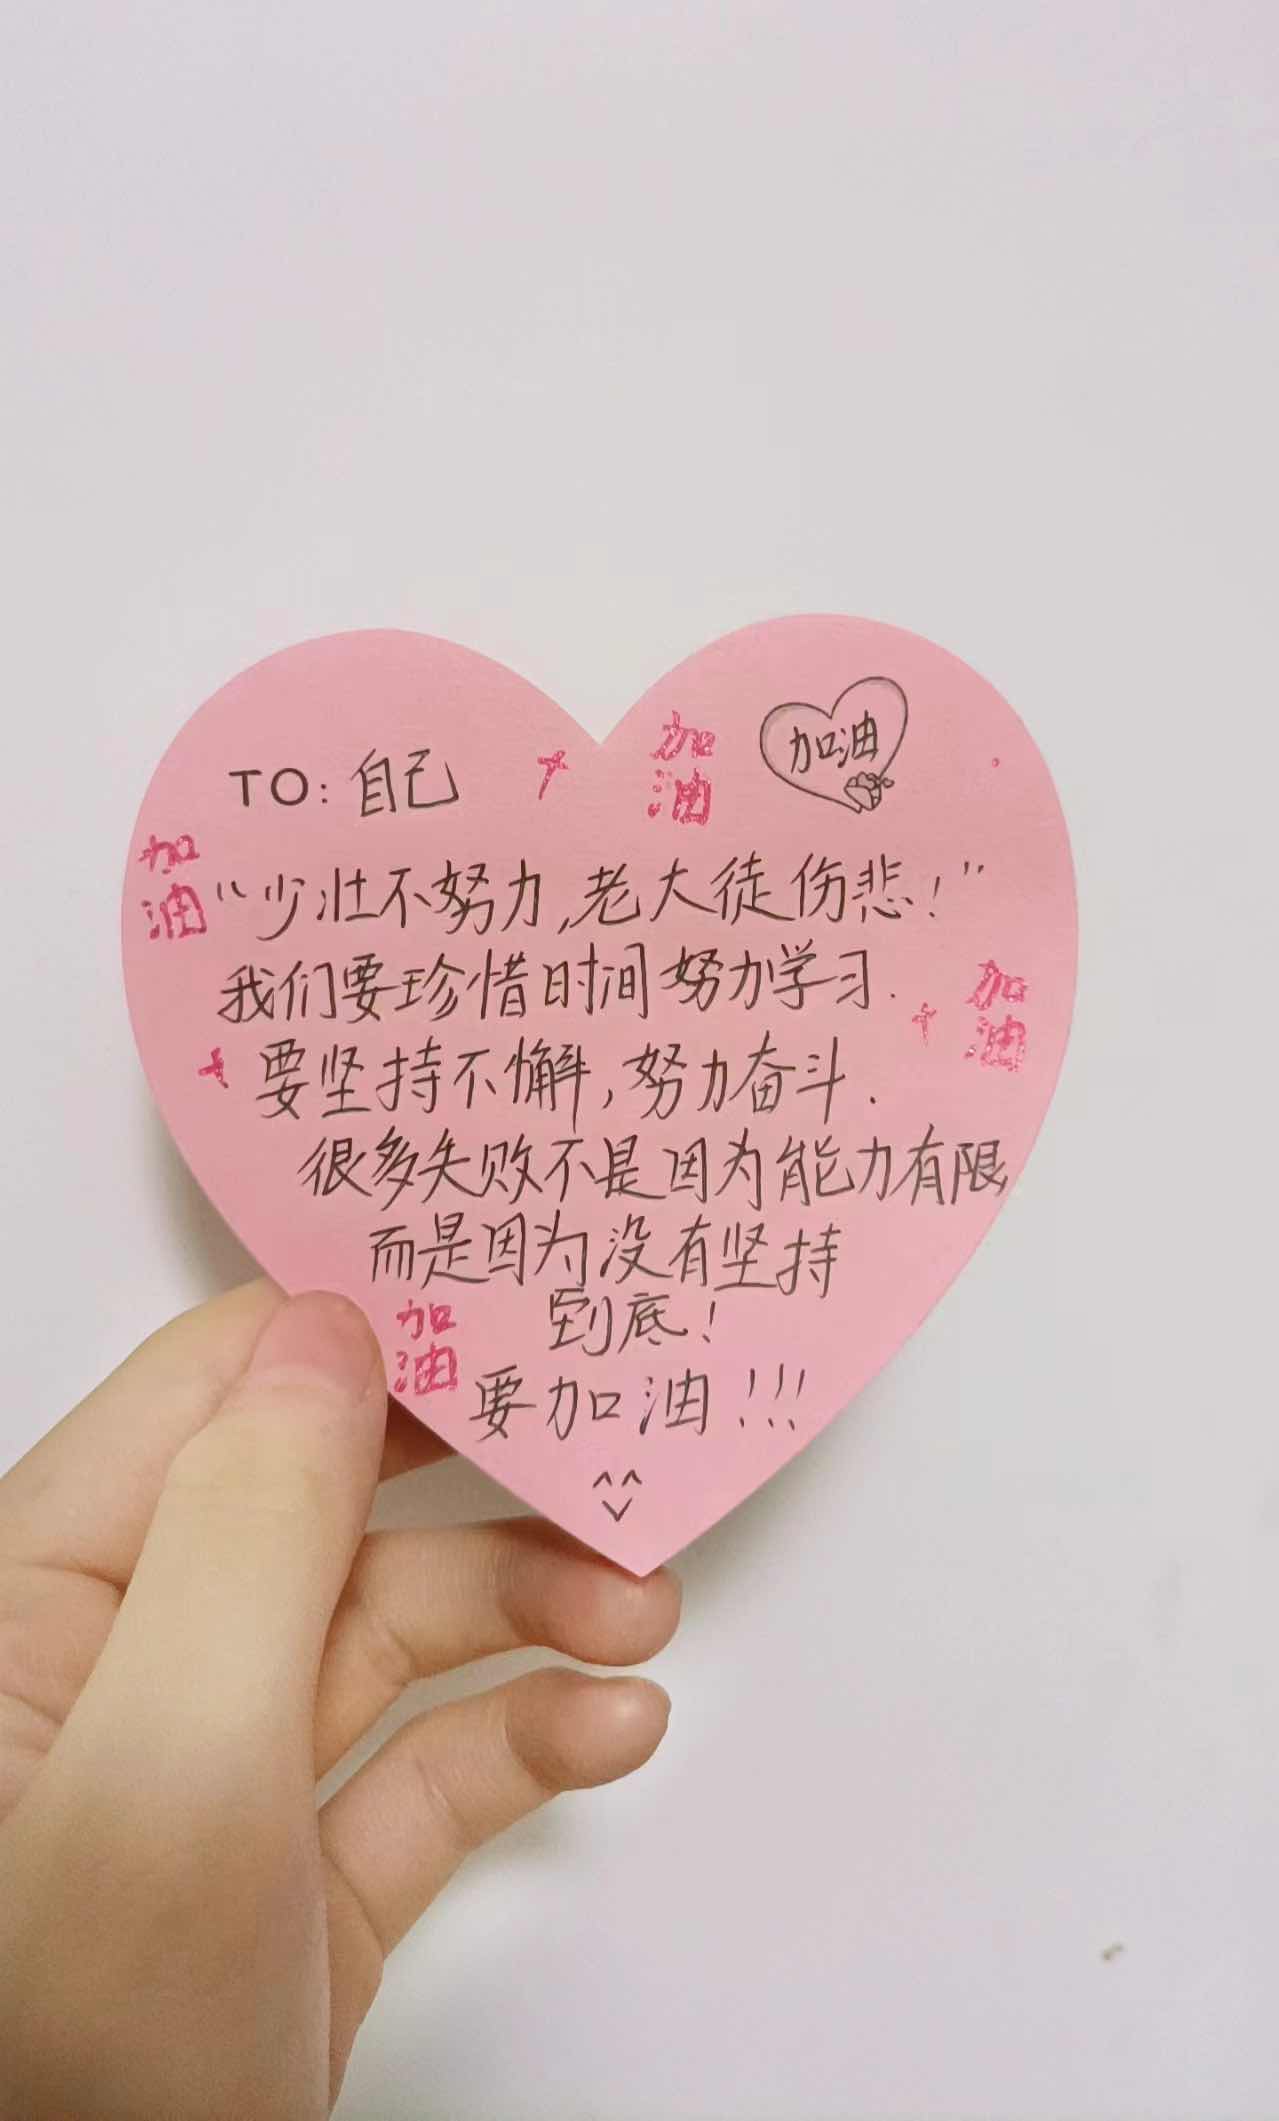 加油
加油
TO: 自己
加油
“少壮不努力,老大徒伤悲!”
我们要珍惜时间努力学习.
加油
要坚持不懈,努力奋斗.
很多失败不是因为能力有限,
而是因为没有坚持
到底!
加油
要加油!!!